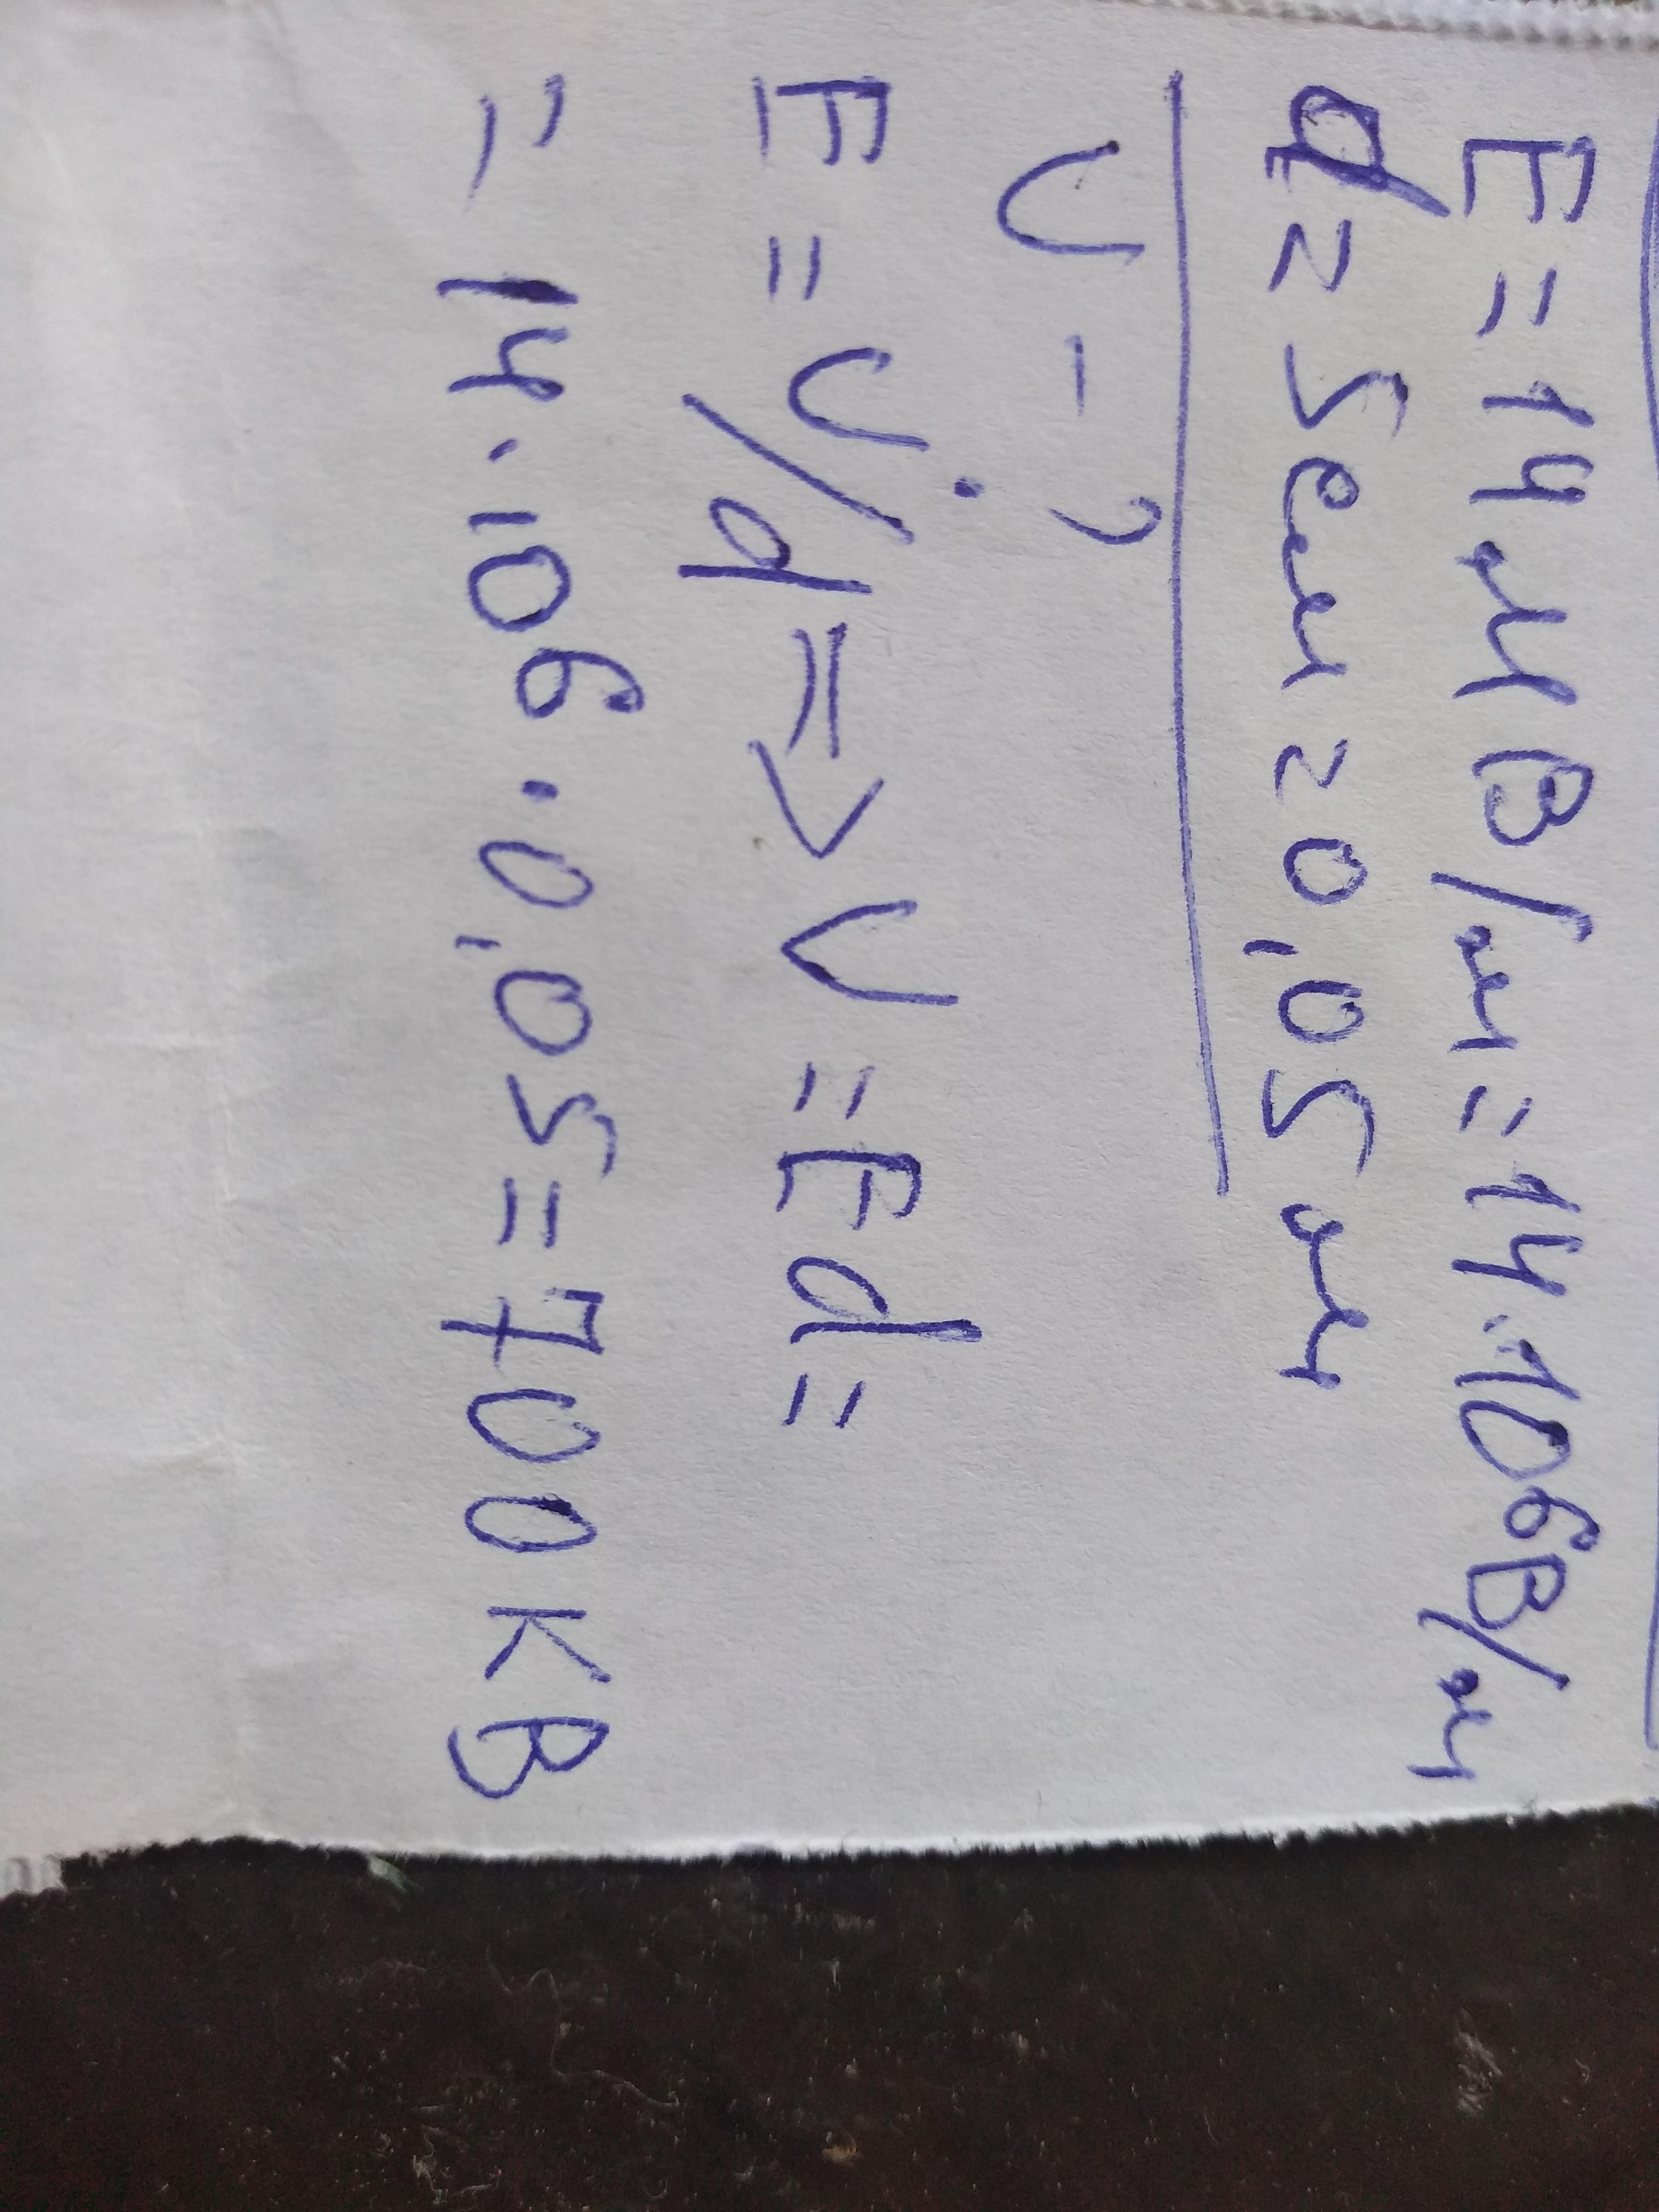 E = 14 МВ/м = 14·10⁶В/м
d = 5см = 0,05 м
U - ?
E = U/d => U = Ed =
= 14·10⁶·0,05 = 700 кВ